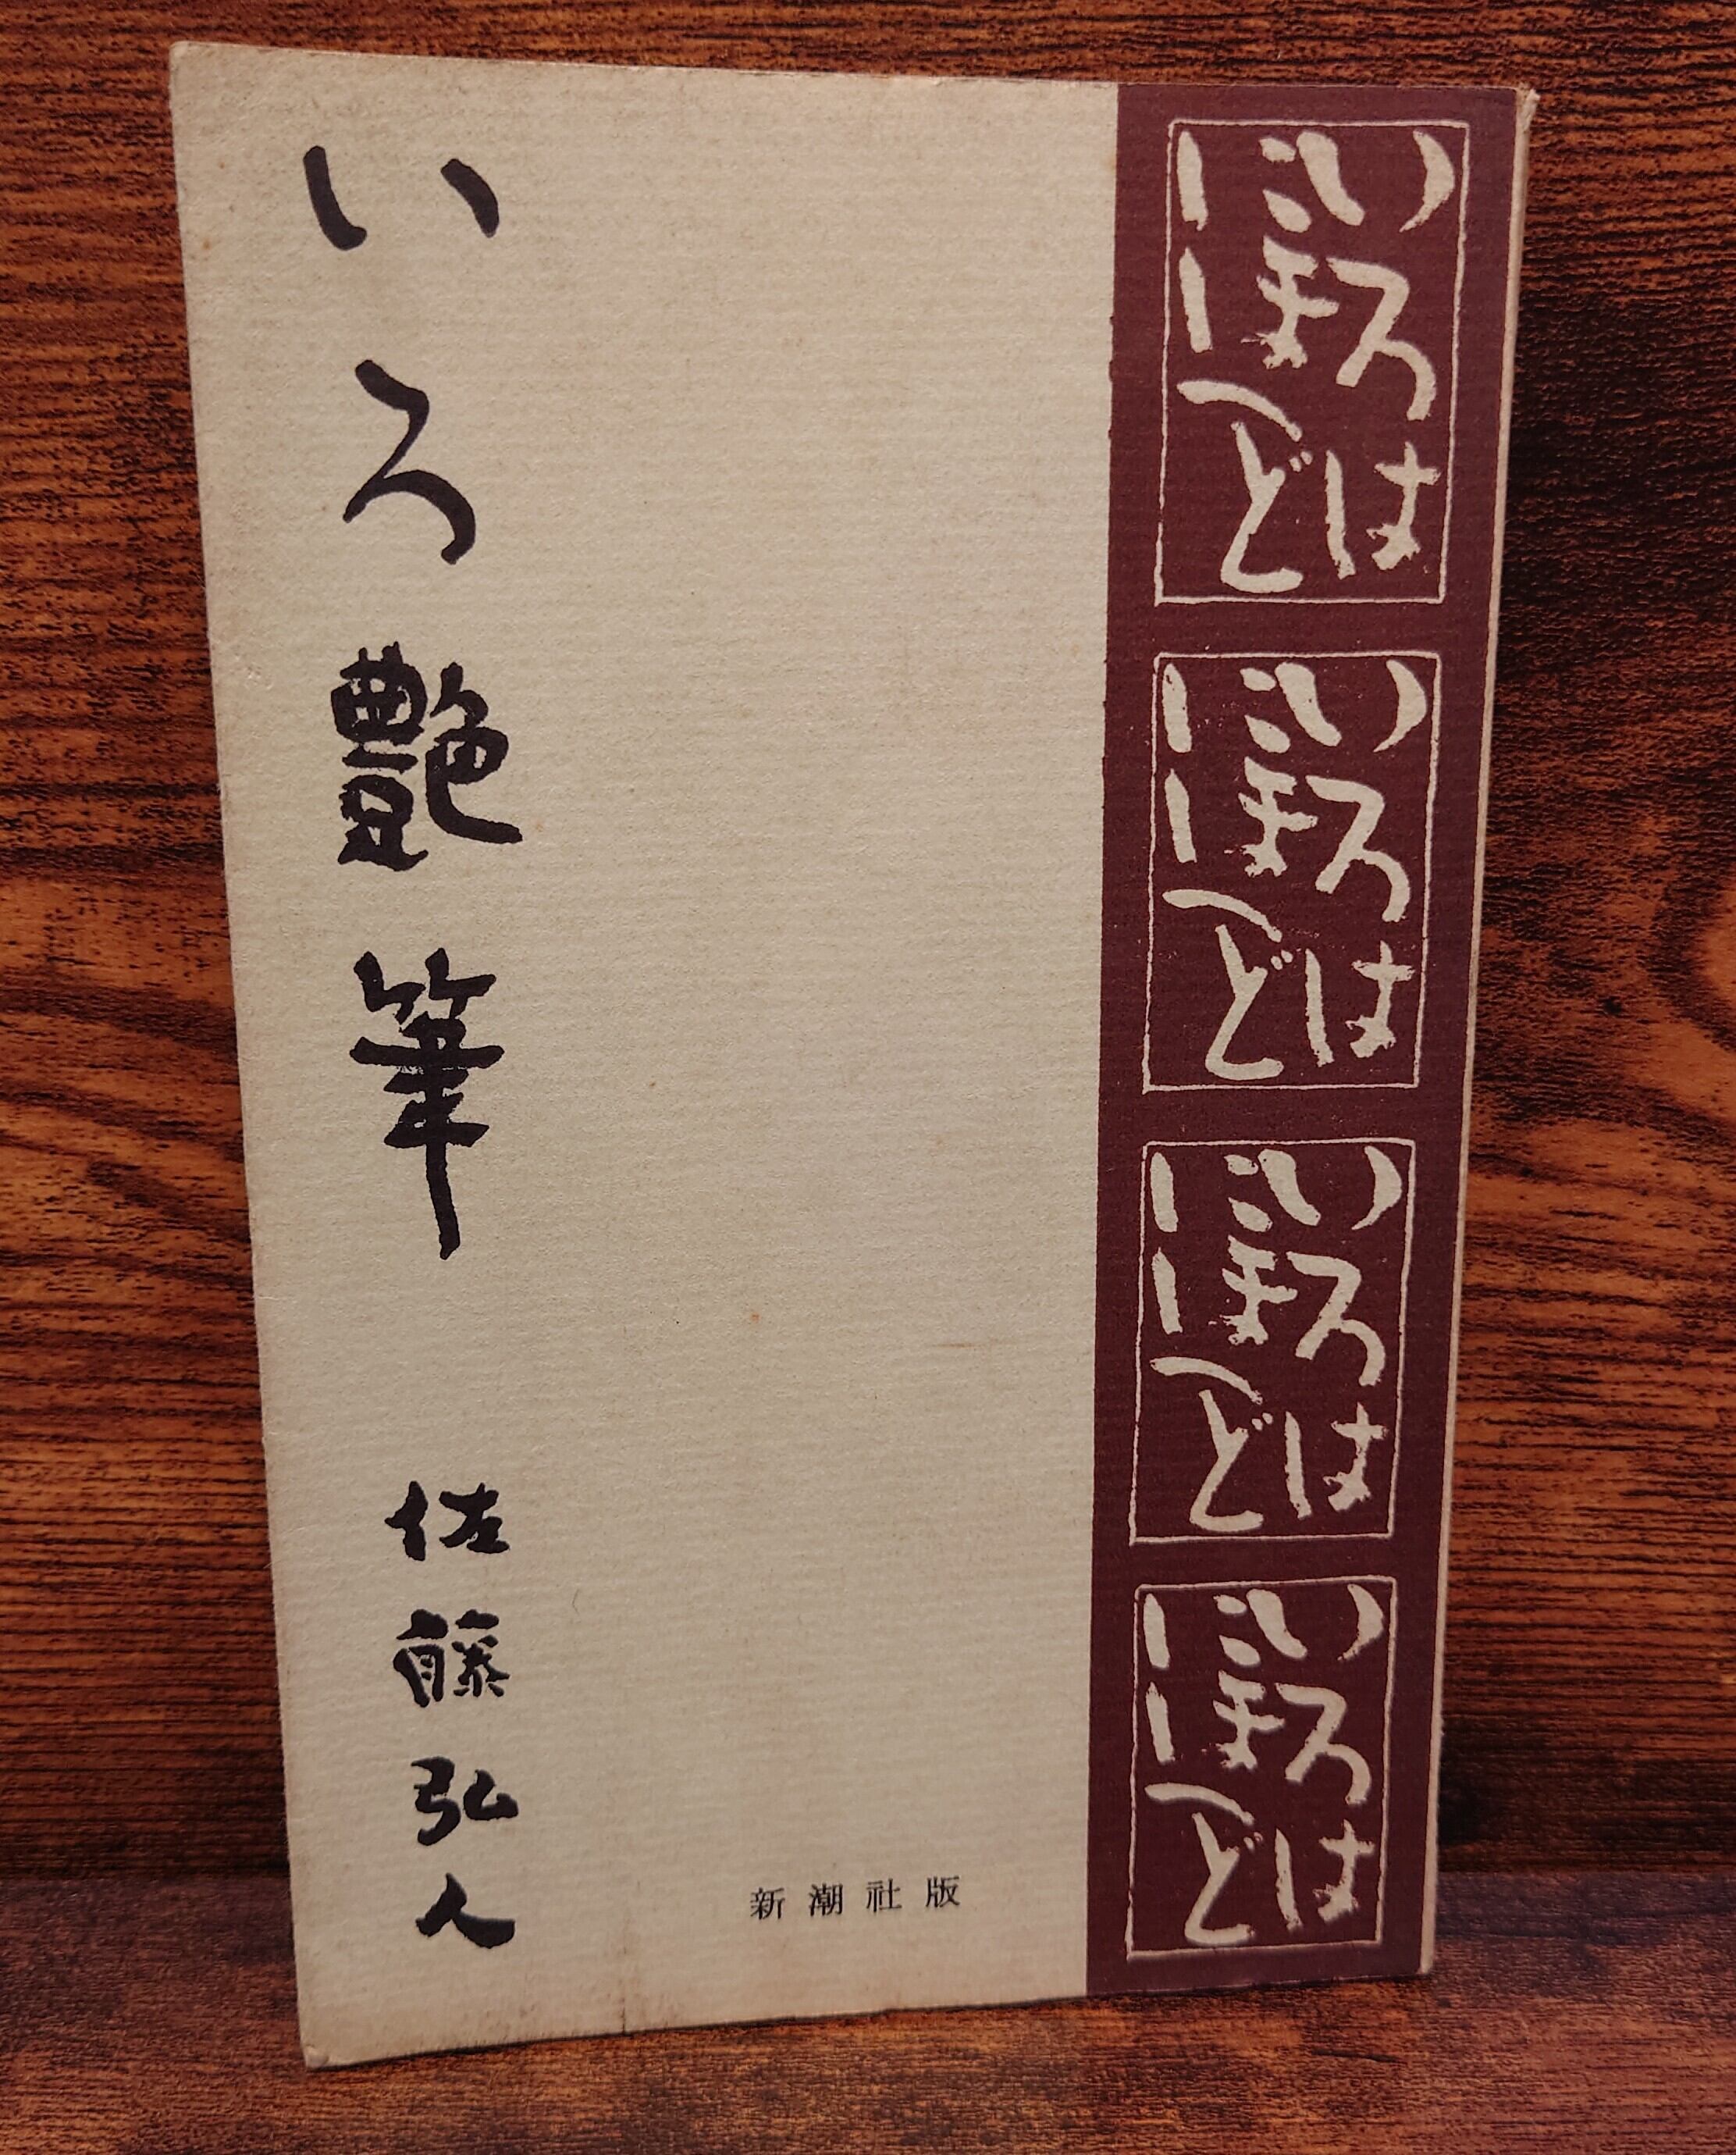 いろ艶筆
佐藤弘人
新潮社版
いろは
にほへど
いろは
にほへど
いろは
にほへど
いろは
にほへど